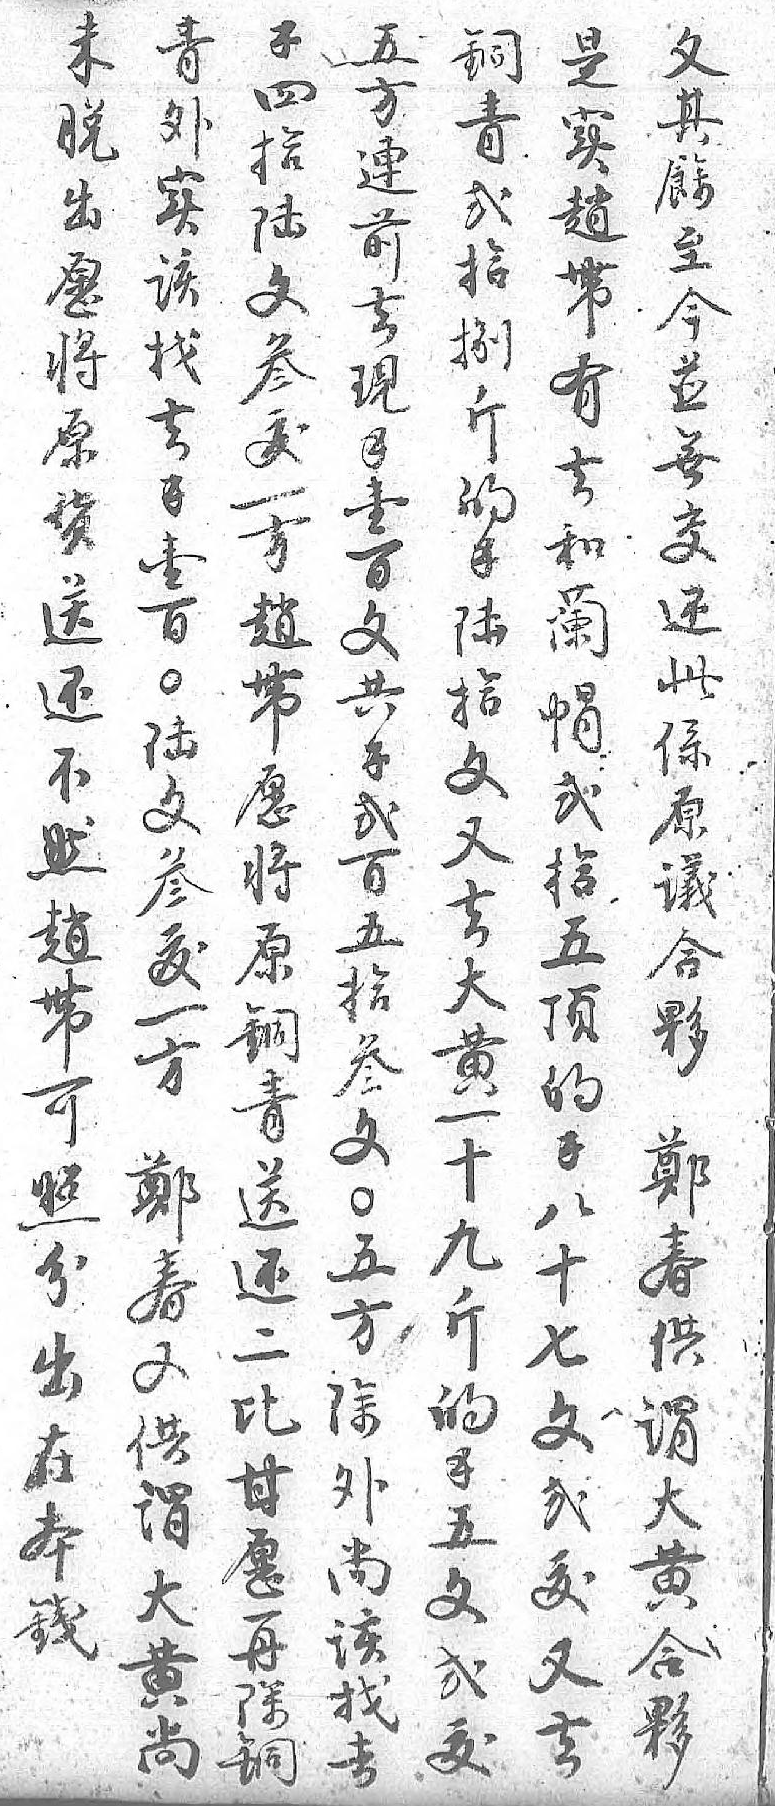 文其餘至今並無交还此係原議合夥 鄭春供謂大黄合夥
是實趙帶有去和蘭帽弍拾五頂的钅八十七文弍夊又去
銅青弍拾捌斤的钅陆拾文又去大黄一十九斤的钅五文弍夊
五方連前去現钅壹百文共钅弍百五拾叁文〇五方除外尚該找去
钅四拾陆文叁夊一方趙帶愿將原銅青送还二比甘愿再除銅
青外實該找去钅壹百〇陆文叁夊一方 鄭春又供謂大黄尚
未脱出愿將原货送还不然趙帶可照分出在本錢